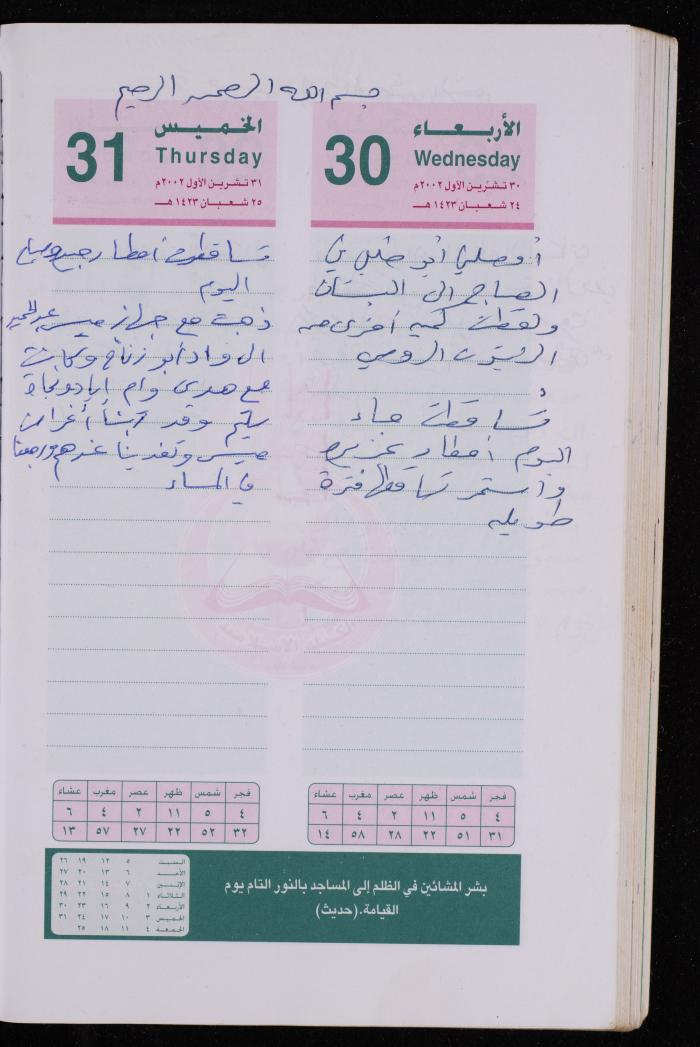 بسم الله الرحمن الرحيم
الأربعاء
Wednesday
30
٣٠ تشرين الأول ٢٠٠٢م
٢٤ شعبان ١٤٢٣ هـ
أوصلني أبو خليل في
الصباح الى البستان
ولقطت كمية أخرى من
الزيتون الرومي
تساقطت مساء
اليوم امطار غزيرة
واستمر تساقطها فترة
طويلة
فجر شمس ظهر عصر مغرب عشاء
٤ ٥ ١١ ٢ ٤ ٦
٣١ ٥١ ٢٢ ٢٨ ٥٨ ١٤
الخميس
Thursday
31
٣١ تشرين الأول ٢٠٠٢م
٢٥ شعبان ١٤٢٣ هـ
تساقطت أمطار صباح
اليوم
ذهبت مع جهاز ميسر
الى واد أبو زناح وكانت
مع هدى وام اياد ونجاة
وقد
ميسر وتغدينا عندهم ورجعنا
في المساء
الكتلة الاسلامية
فجر شمس ظهر عصر مغرب عشاء
٤ ٥ ١١ ٢ ٤ ٦
٣٢ ٥٢ ٢٢ ٢٧ ٥٧ ١٣
بشر المشائين في الظلم إلى المساجد بالنور التام يوم
القيامة.(حديث)
السبت ٥ ١٢ ١٩ ٢٦
الأحد ٦ ١٣ ٢٠ ٢٧
الإثنين ٧ ١٤ ٢١ ٢٨
الثلاثاء ١ ٨ ١٥ ٢٢ ٢٩
الأربعاء ٢ ٩ ١٦ ٢٣ ٣٠
الخميس ٣ ١٠ ١٧ ٢٤ ٣١
الجمعة ٤ ١١ ١٨ ٢٥